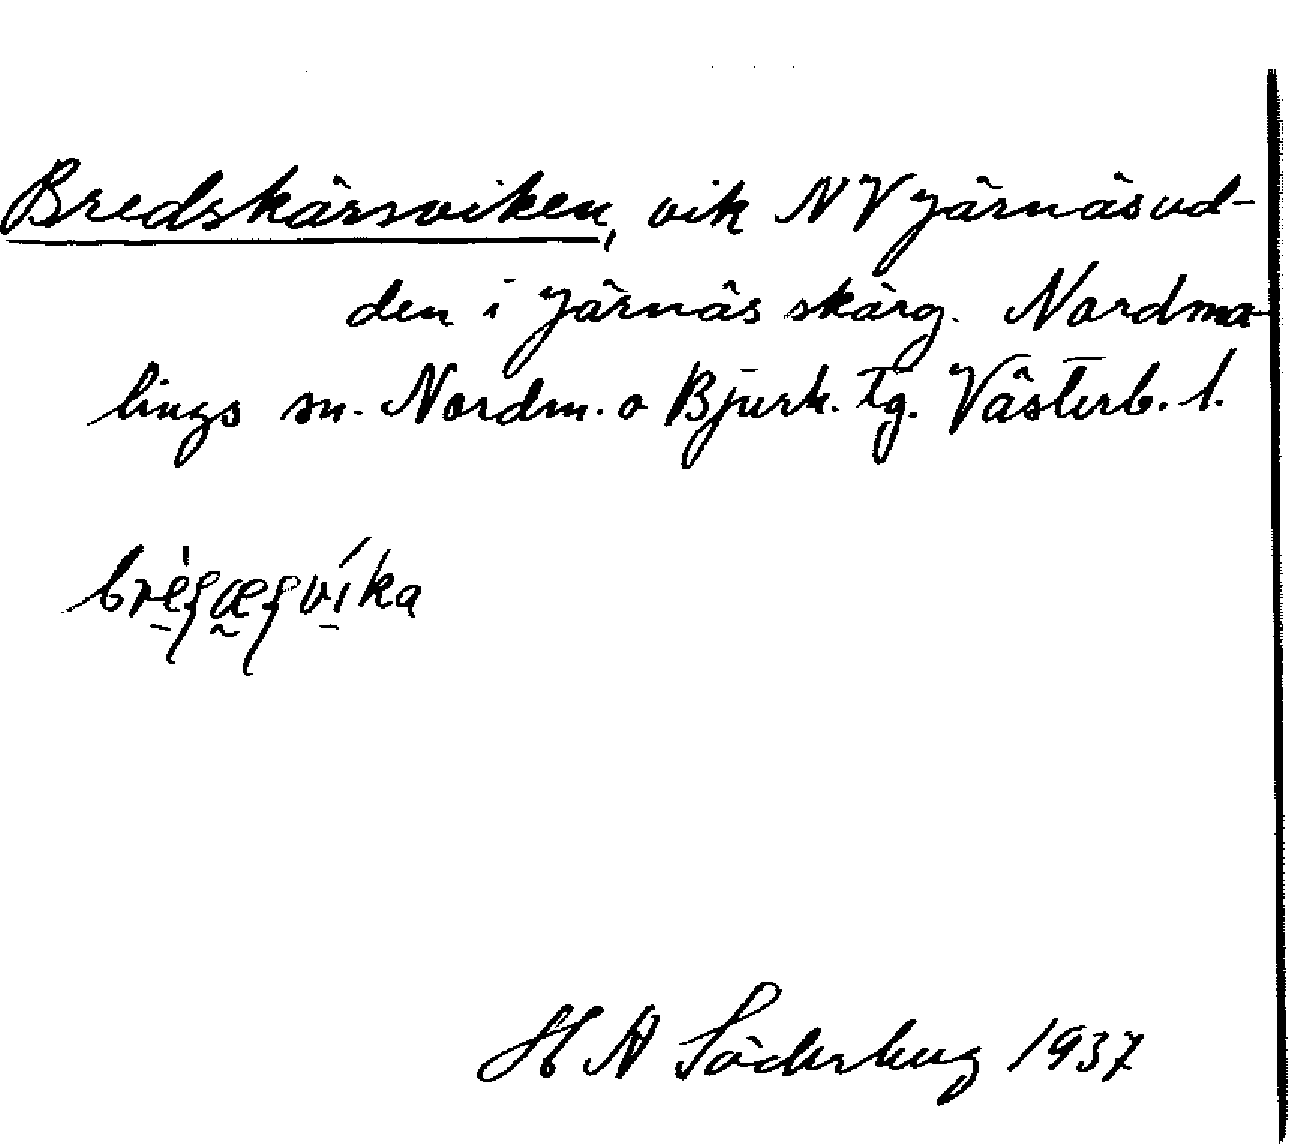 Bredskärsviken, vik NV Järnäsud-
den i Järnäs skärg. Nordma-
lings sn. Nordm. o Bjurh. tg. Västerb. l.
H N Söderberg 1937